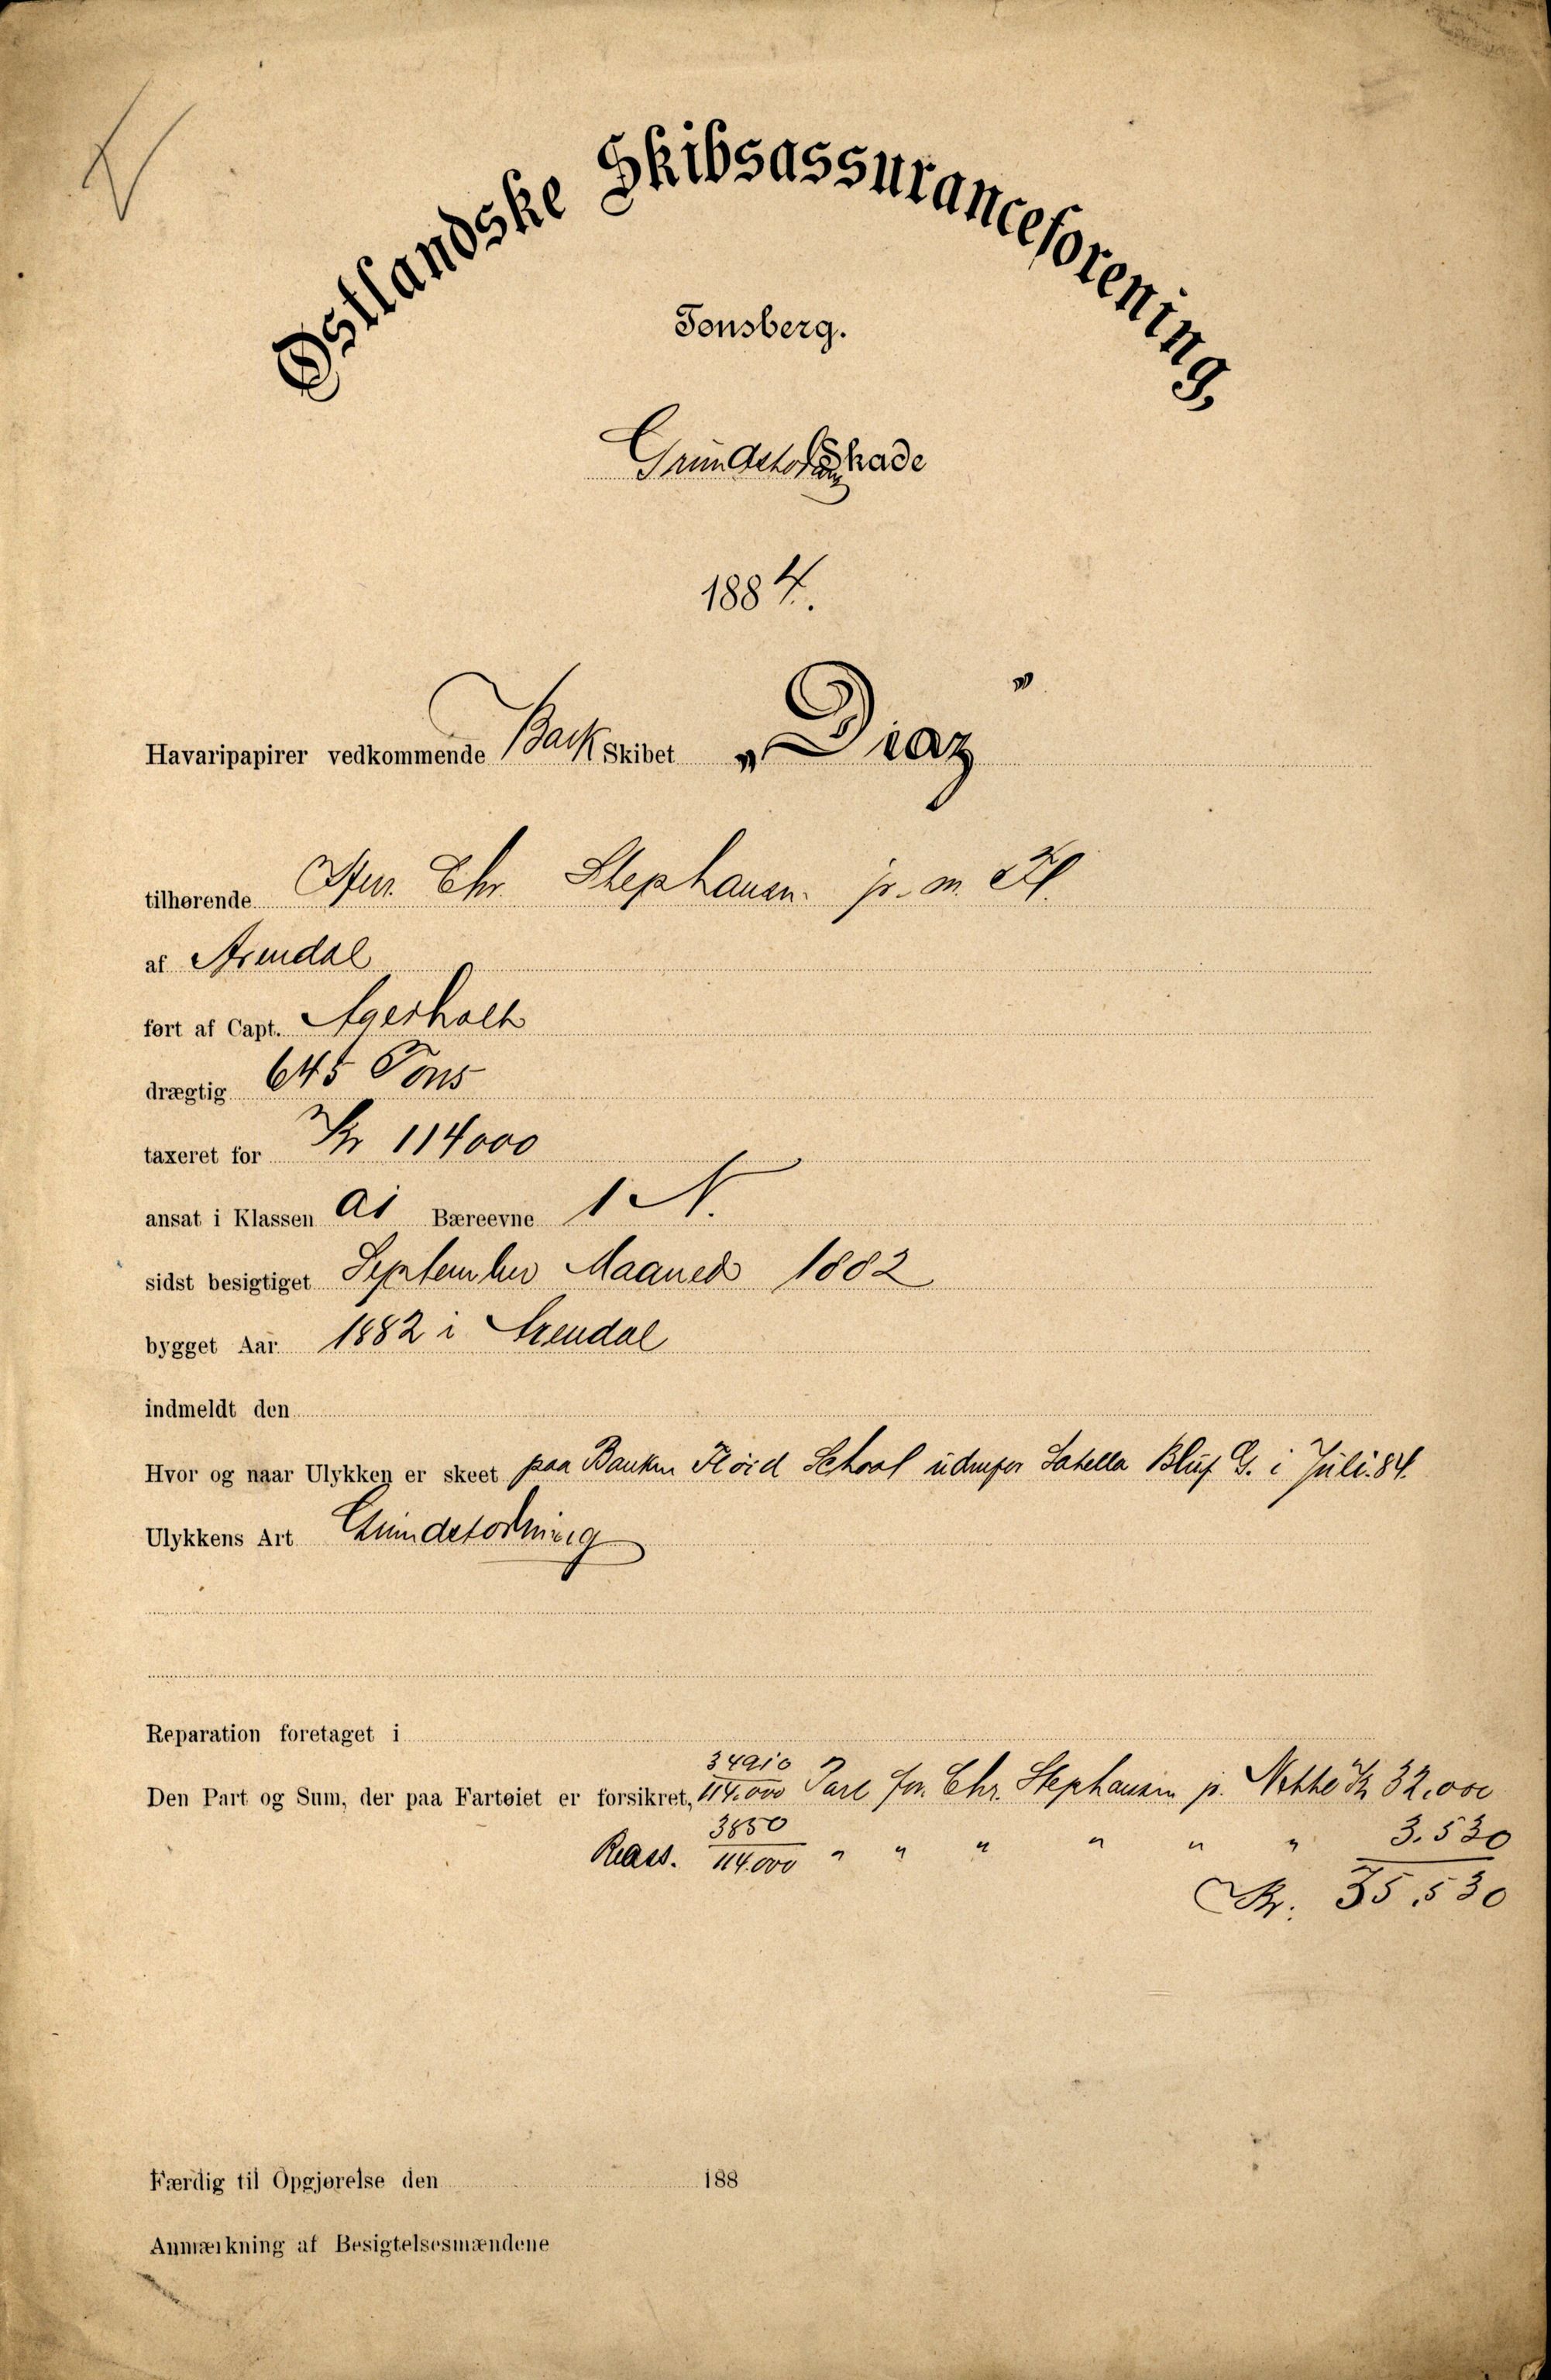 Østlandske Skibsassuranceforening,
Tønsberg.
Grundstødnings Skade
1884.
Havaripapirer vedkommende Bark Skibet „Diaz”
tilhørende Hrr. Chr. Stephansen jr. m. Fl.
af Arendal
ført af Capt. Agerholt
drægtig 645 Tons
taxeret for Kr 114000
ansat i Klassen A1 Bæreevne 1 N.
sidst besigtiget September Maaned 1882
bygget Aar 1882 i Arendal
indmeldt den
Hvor og naar Ulykken er skeet paa Banken i Juli 84.
Ulykkens Art Grundstødning
Reparation foretaget i
34910
Den Part og Sum, der paa Fartøiet er forsikret, 114.000 Part for Chr. Stephansen jr. Netto Kr 32.000
3850
Reass. 114.000 " " " " " " 3.530
Kr. 35.530
Færdig til Opgjørelse den 188
Anmærkning af Besigtelsesmændene